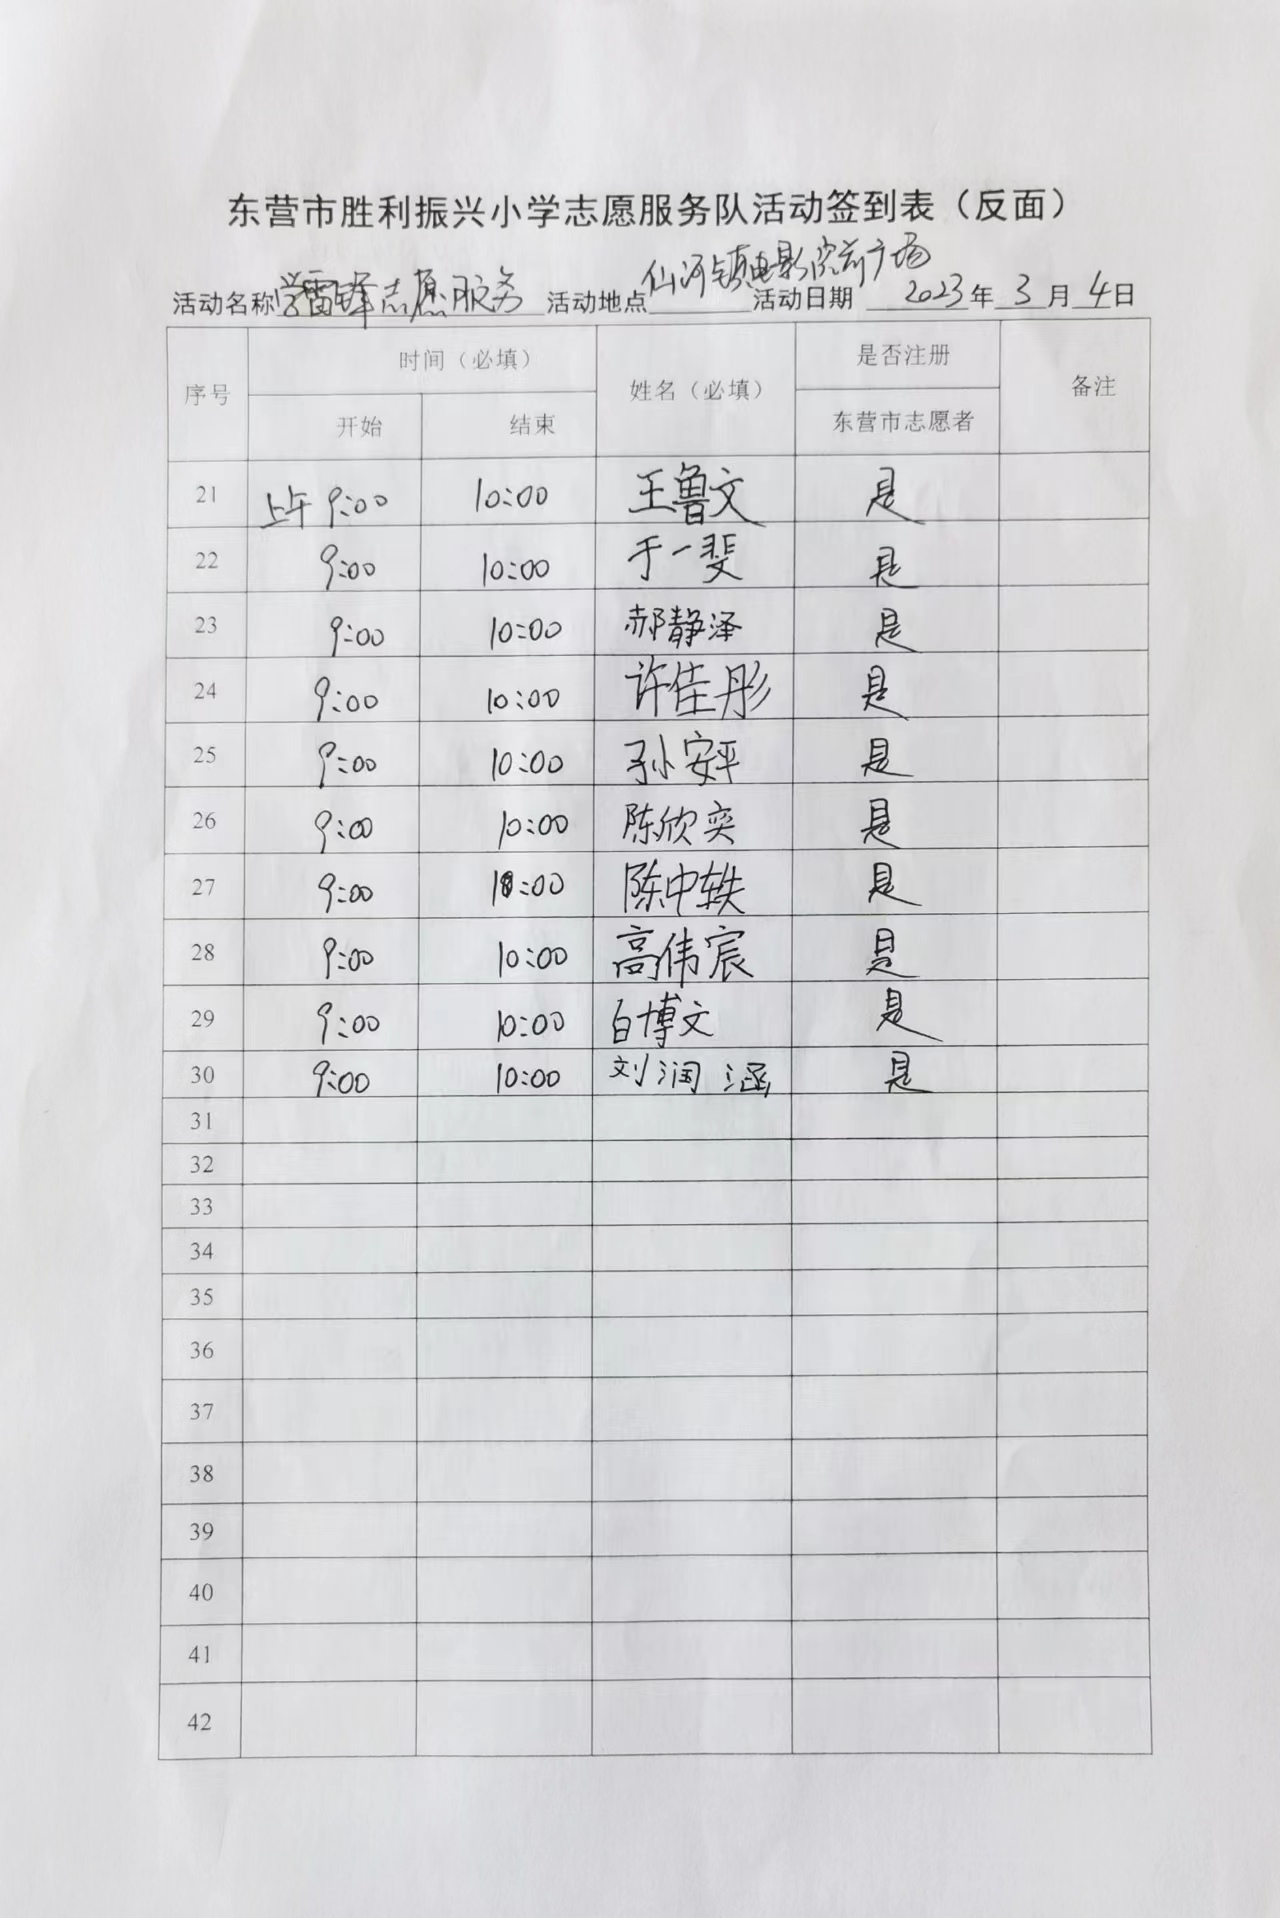 东营市胜利振兴小学志愿服务队活动签到表（反面）
活动名称 学雷锋志愿服务 活动地点 仙河镇电影院前广场 活动日期 2023年 3 月 4 日
序号 时间（必填） 姓名（必填） 是否注册 备注
开始 结束 东营市志愿者
21 上午 9:00 10:00 王鲁文 是
22 9:00 10:00 于一斐 是
23 9:00 10:00 郝静泽 是
24 9:00 10:00 许佳彤 是
25 9:00 10:00 孙安平 是
26 9:00 10:00 陈欣奕 是
27 9:00 10:00 陈中轶 是
28 9:00 10:00 高伟宸 是
29 9:00 10:00 白博文 是
30 9:00 10:00 刘润涵 是
31
32
33
34
35
36
37
38
39
40
41
42